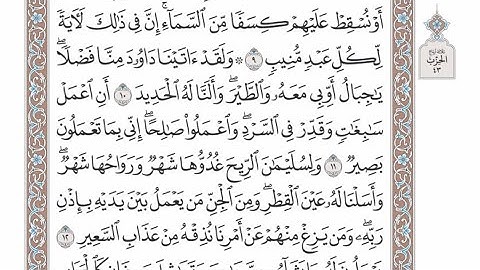 أَوْ نُسْقِطْ عَلَيْهِمْ كِسَفًا مِّنَ السَّمَآءِ إِنَّ فِى ذَٰلِكَ لَأٓيَةً
لِّكُلِّ عَبْدٍ مُّنِيبٍ ٩ ۞ وَلَقَدْ ءَاتَيْنَا دَاوُۥدَ مِنَّا فَضْلًا
يَٰجِبَالُ أَوِّبِى مَعَهُۥ وَالطَّيْرَ وَأَلَنَّا لَهُ الْحَدِيدَ ١٠ أَنِ اعْمَلْ
سَٰبِغَٰتٍ وَقَدِّرْ فِى السَّرْدِ وَاعْمَلُوا۟ صَٰلِحًا إِنِّى بِمَا تَعْمَلُونَ
بَصِيرٌ ١١ وَلِسُلَيْمَٰنَ الرِّيحَ غُدُوُّهَا شَهْرٌ وَرَوَاحُهَا شَهْرٌ
وَأَسَلْنَا لَهُۥ عَيْنَ الْقِطْرِ وَمِنَ الْجِنِّ مَن يَعْمَلُ بَيْنَ يَدَيْهِ بِإِذْنِ
رَبِّهِۦ وَمَن يَزِغْ مِنْهُمْ عَنْ أَمْرِنَا نُذِقْهُ مِنْ عَذَابِ السَّعِيرِ ١٢
الحزب
٤٣